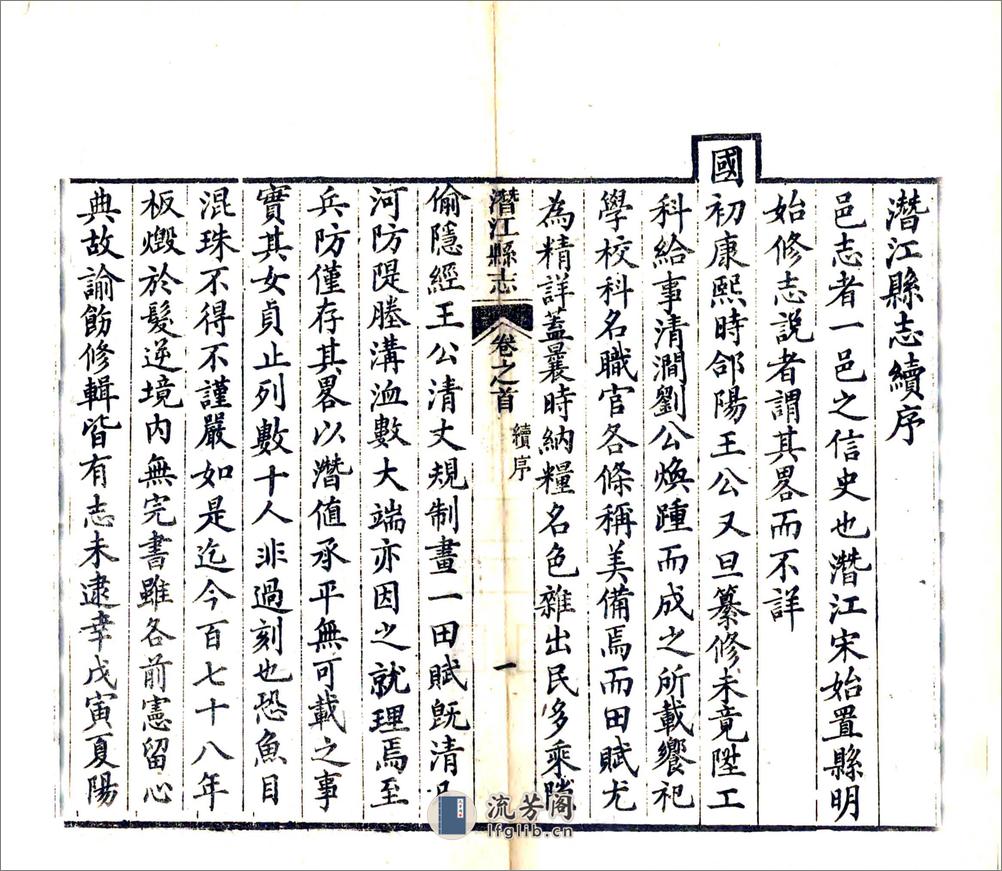 潛江縣志續序
邑志者一邑之信史也潛江宋始置縣明
始修志説者謂其畧而不詳
國初康熙時郃陽王公又旦纂修未竟陞工
科給事清澗劉公煥踵而成之所載饗祀
學校科名職官各條稱美備焉而田賦尤
為精詳蓋曩時納糧名色雜出民多乘隙
潛江縣志
卷之首
續序
一
偷隱經王公清丈規制畫一田賦旣清凡
河防隄塍溝洫數大端亦因之就理焉至
兵防僅存其畧以潛值承平無可載之事
實其女貞止列數十人非過刻也恐魚目
混珠不得不謹嚴如是迄今百七十八年
板燬於髮逆境内無完書雖各前憲留心
典故諭飭修輯皆有志未逮幸戊寅夏陽
流芳阁
lfglib.cn